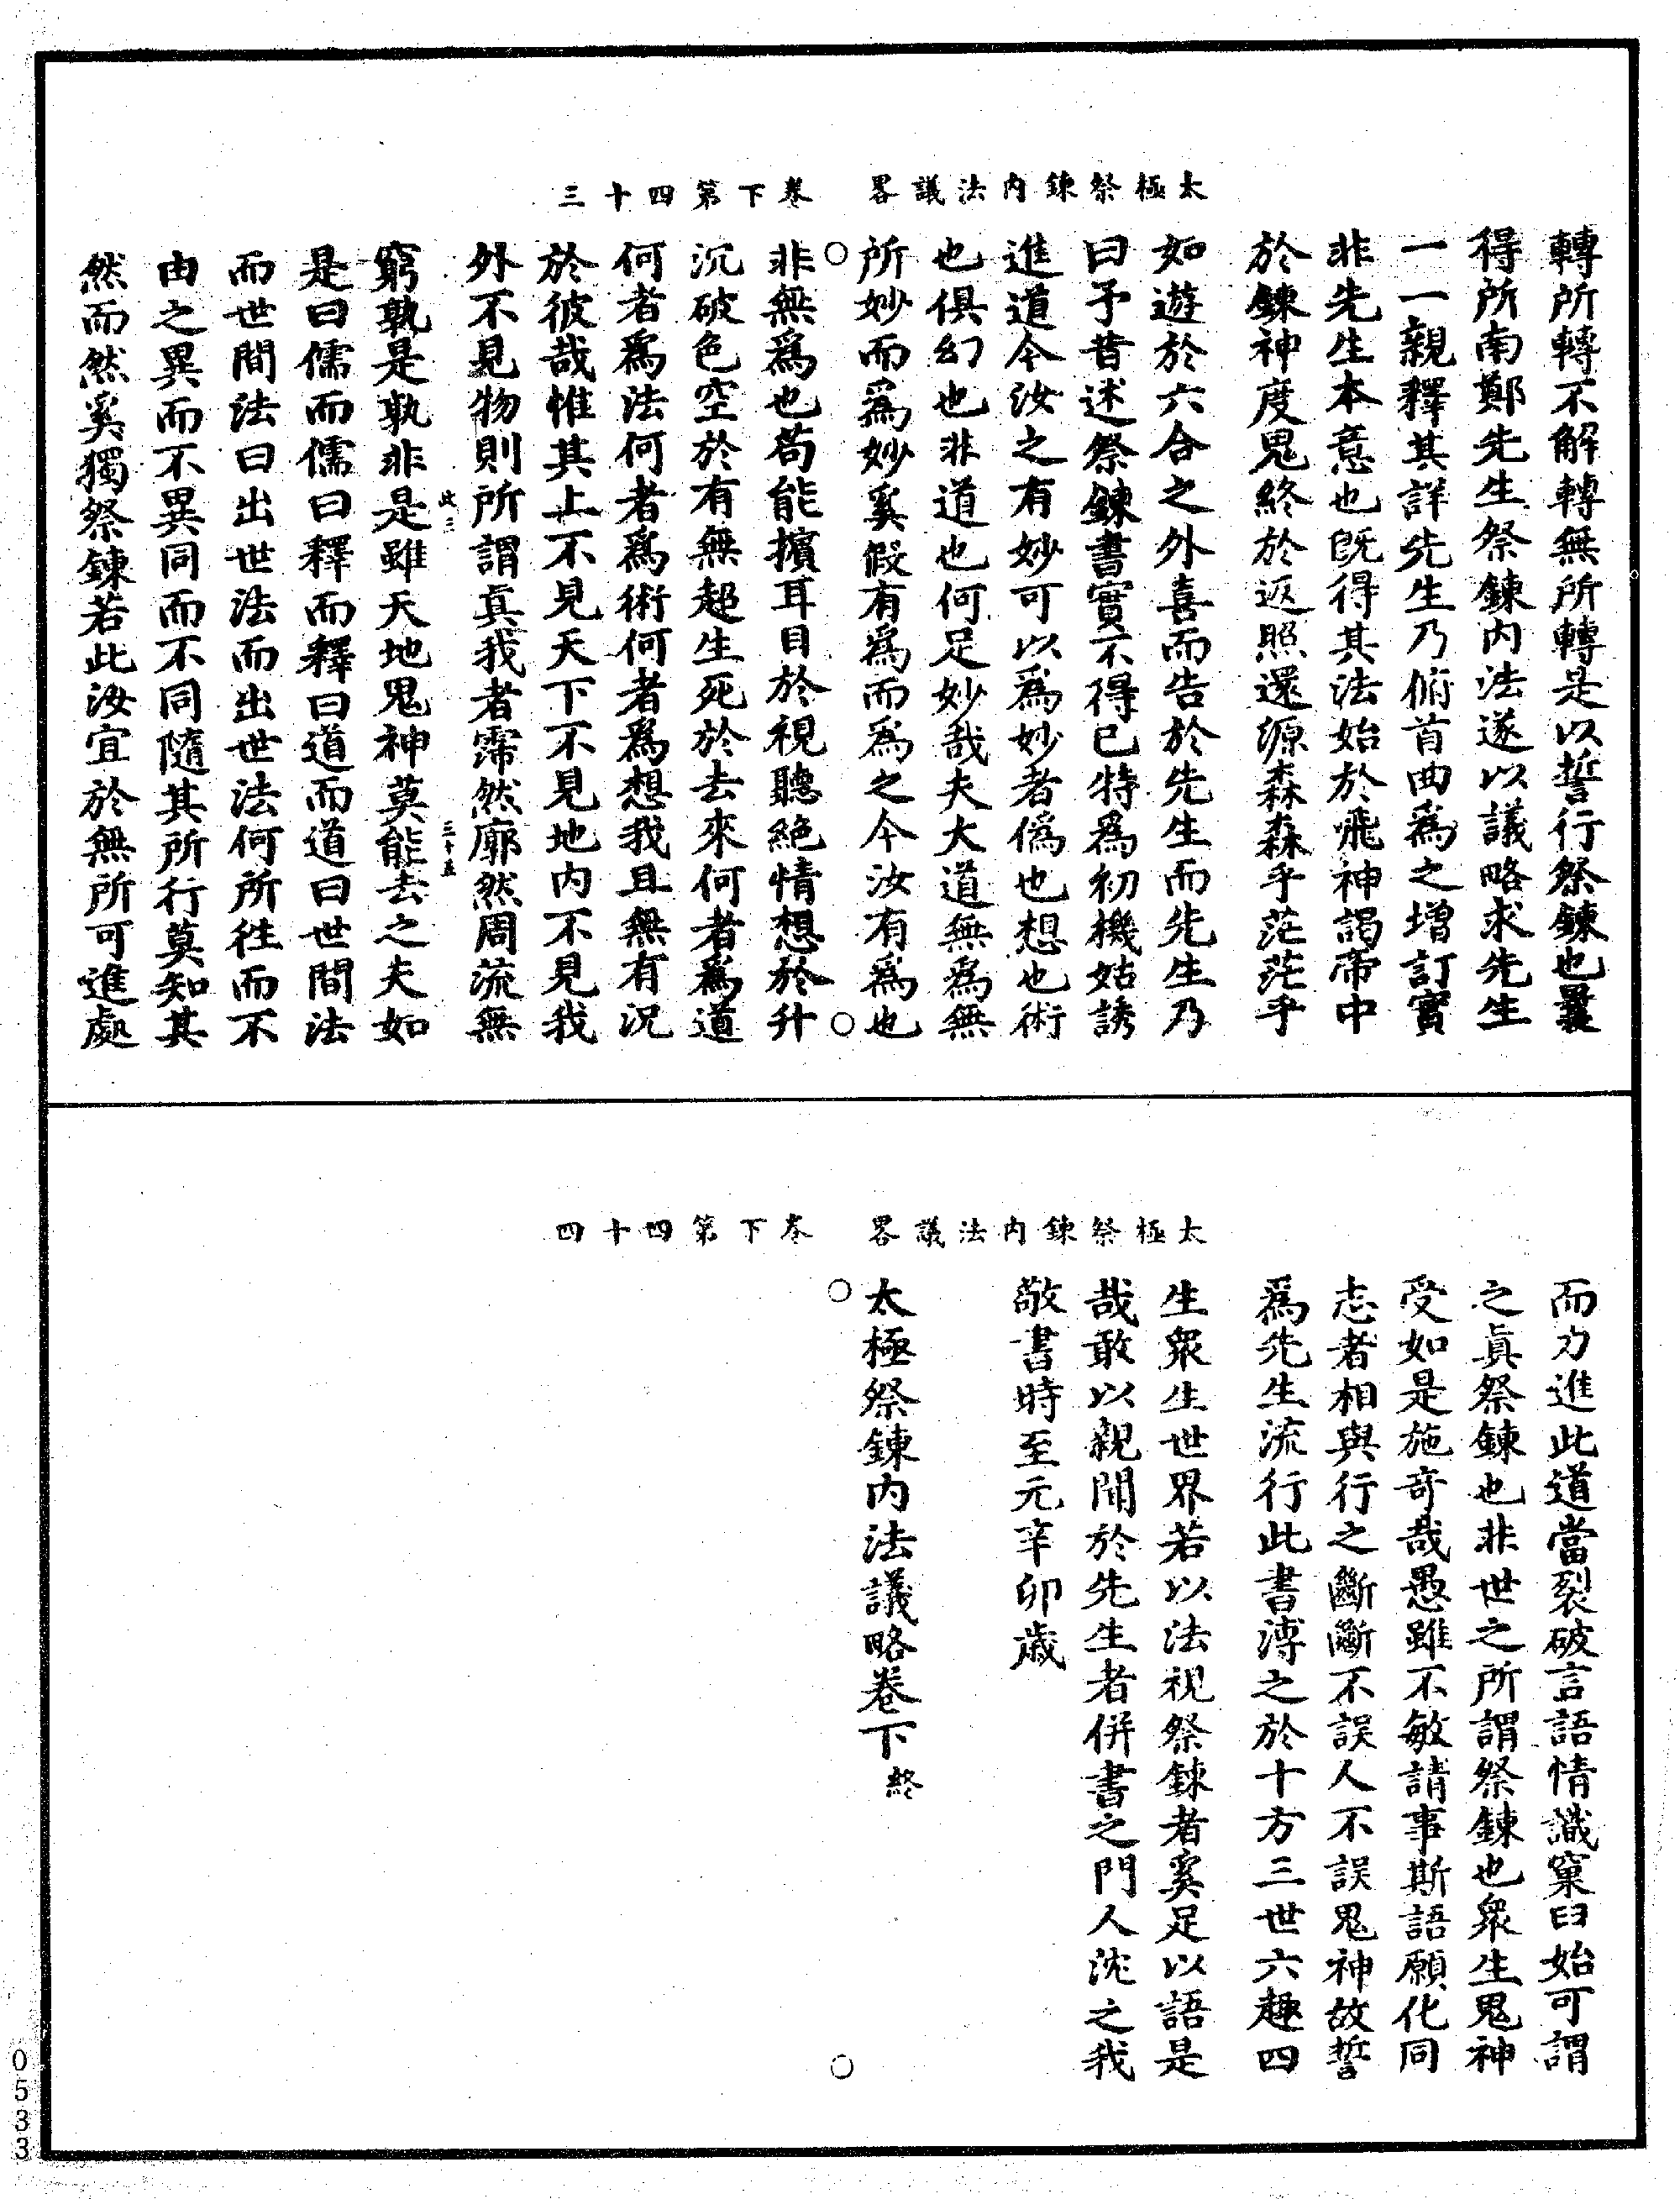 太極祭鍊內法議畧　卷下第四十三
轉所轉不解轉無所轉是以誓行祭鍊也曩
得所南鄭先生祭鍊內法遂以議略求先生
一一親釋其詳先生乃俯首曲爲之增訂實
非先生本意也旣得其法始於飛神謁帝中
於鍊神度鬼終於返照還源森森乎茫茫乎
如遊於六合之外喜而告於先生而先生乃
曰予昔述祭鍊書實不得已特爲初機姑誘
進道今汝之有妙可以爲妙者僞也想也術
也俱幻也非道也何足妙哉夫大道無爲無
所妙而爲妙奚假有爲而爲之今汝有爲也
非無爲也苟能擯耳目於視聽絕情想於升
沉破色空於有無超生死於去來何者爲道
何者爲法何者爲術何者爲想我且無有況
於彼哉惟其上不見天下不見地內不見我
外不見物則所謂眞我者霈然廓然周流無
此三　三十五
窮孰是孰非是雖天地鬼神莫能去之夫如
是曰儒而儒曰釋而釋曰道而道曰世間法
而世間法曰出世法而出世法何所徃而不
由之異而不異同而不同隨其所行莫知其
然而然奚獨祭鍊若此汝宜於無所可進處
太極祭鍊內法議畧　卷下第四十四
而力進此道當裂破言語情識窠臼始可謂
之眞祭鍊也非世之所謂祭鍊也衆生鬼神
受如是施奇哉愚雖不敏請事斯語願化同
志者相與行之斷斷不誤人不誤鬼神故誓
爲先生流行此書溥之於十方三世六趣四
生衆生世界若以法視祭鍊者奚足以語是
哉敢以親聞於先生者併書之門人沈之我
敬書時至元辛卯歲
太極祭鍊內法議略卷下終
0533